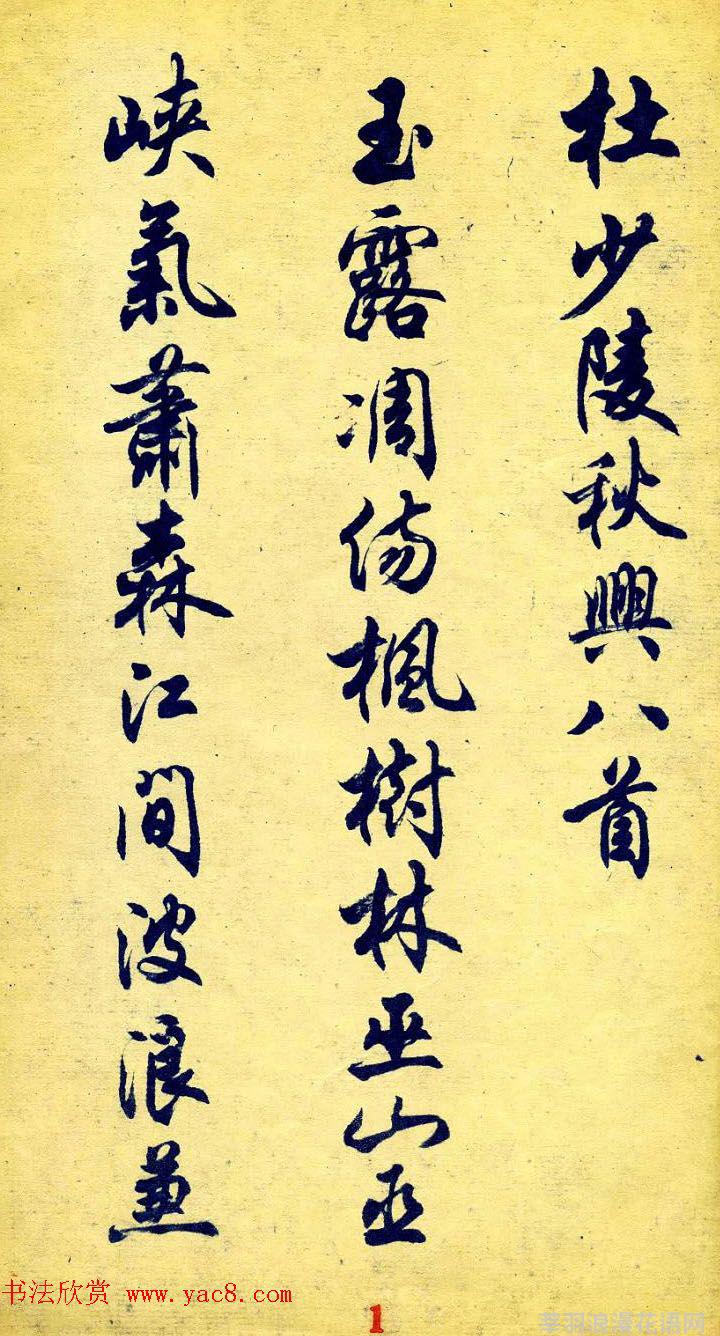 杜少陵秋興八首
玉露凋傷楓樹林巫山巫
峽氣蕭森江間波浪兼
书法欣赏 www.yac8.com
1
莘羽浪漫花语网